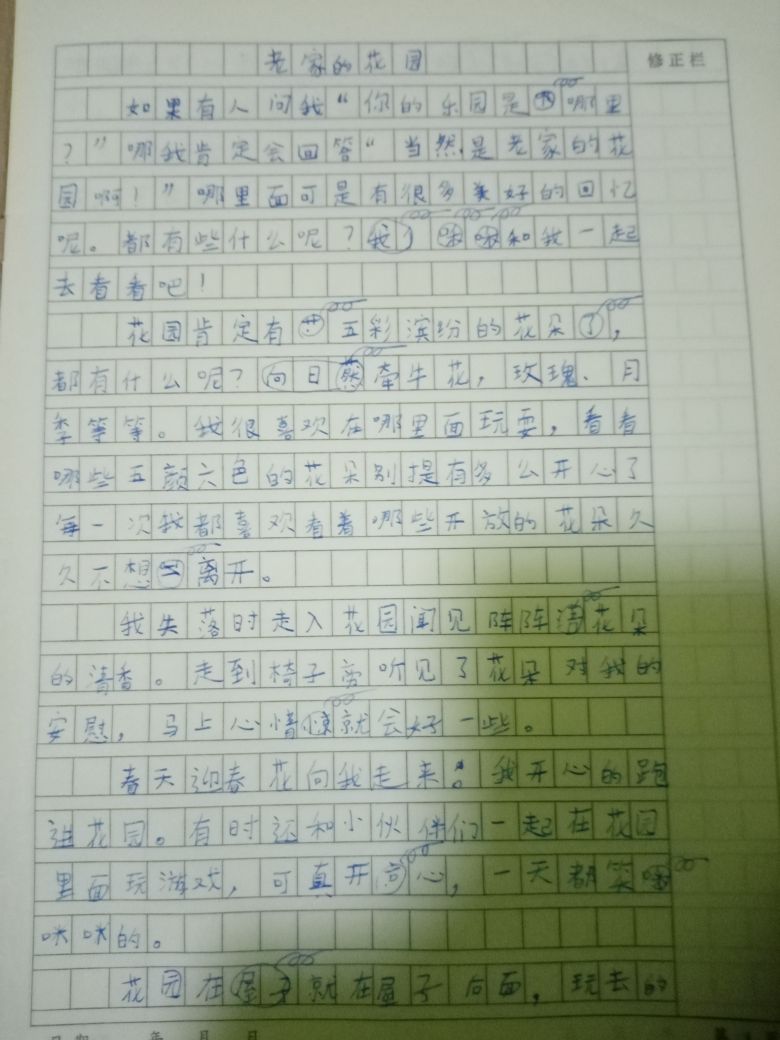 老家的花园
修正栏
如果有人问我“你的乐园是哪里
？”哪我肯定会回答“当然是老家的花
园啊！”哪里面可是有很多美好的回忆
呢。都有些什么呢？和我一起
去看看吧！
花园肯定有五彩滨纷的花朵，
都有什么呢？牵牛花，玫瑰、月
季等等。我很喜欢在哪里面玩耍，看看
哪些五颜六色的花朵别提有多么开心了
每一次我都喜欢看着哪些开放的花朵久
久不想离开。
我失落时走入花园闻见阵阵花朵
的清香。走到椅子旁听见了花朵对我的
安慰，马上心情就会好一些。
春天迎春花向我走来。我开心的跑
进花园。有时还和小伙伴们一起在花园
里面玩游戏，可真开心，一天都笑
咪咪的。
花园在就在屋子向面，玩去的
年 月 日